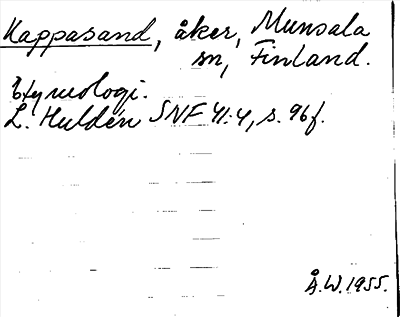 Kappasand, åker, Munsala
sn, Finland.
Etymologi.
L. Huldén SNF 41:4, s. 96f.
Å.W. 1955.